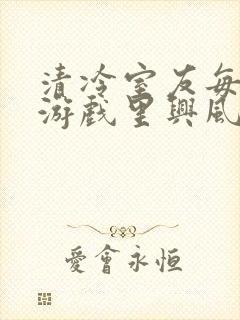 清冷室友每
游戲里興風
愛會永恒